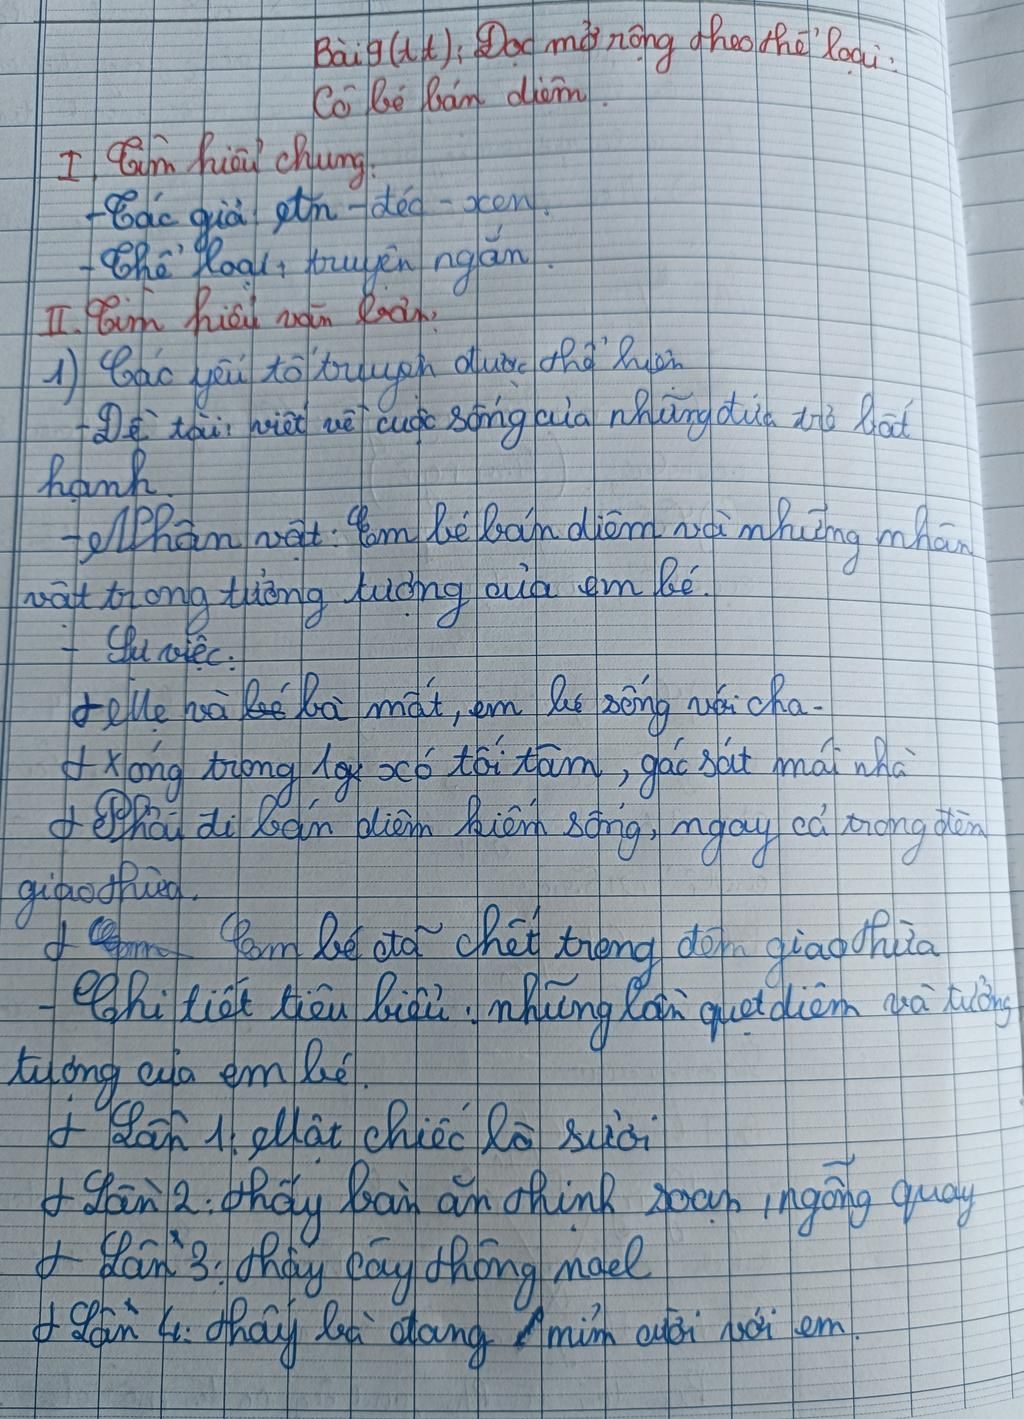 Bài 9 (tt): Đọc mở rộng theo thể loại:
Cô bé bán diêm.
I. Tìm hiểu chung.
- Các giả: etn - đéc - xen.
- Thể loại: truyện ngắn.
II. Tìm hiểu văn bản:
1) Các yếu tố truyện được thể hiện
- Đề tài: viết về cuộc sống của những đứa trẻ bất
hạnh.
- Nhân vật: Em bé bán diêm và những nhân
vật trong tưởng tượng của em bé.
- Sự việc:
+ Mẹ và bé bà mất, em bé sống với cha.
+ Xống trong 1 xó tối tăm, gác sát mái nhà
+ Phải đi bán diêm kiếm sống, ngay cả trong đêm
giao thừa.
+ Em bé đã chết trong đêm giao thừa
- Chi tiết tiêu biểu: những lần quẹt diêm và tưởng
tượng của em bé.
+ Lần 1: Một chiếc lò sưởi
+ Lần 2: thấy bàn ăn thịnh soạn, ngỗng quay
+ Lần 3: thấy cây thông noel
+ Lần 4: thấy bà đang mỉm cười với em.